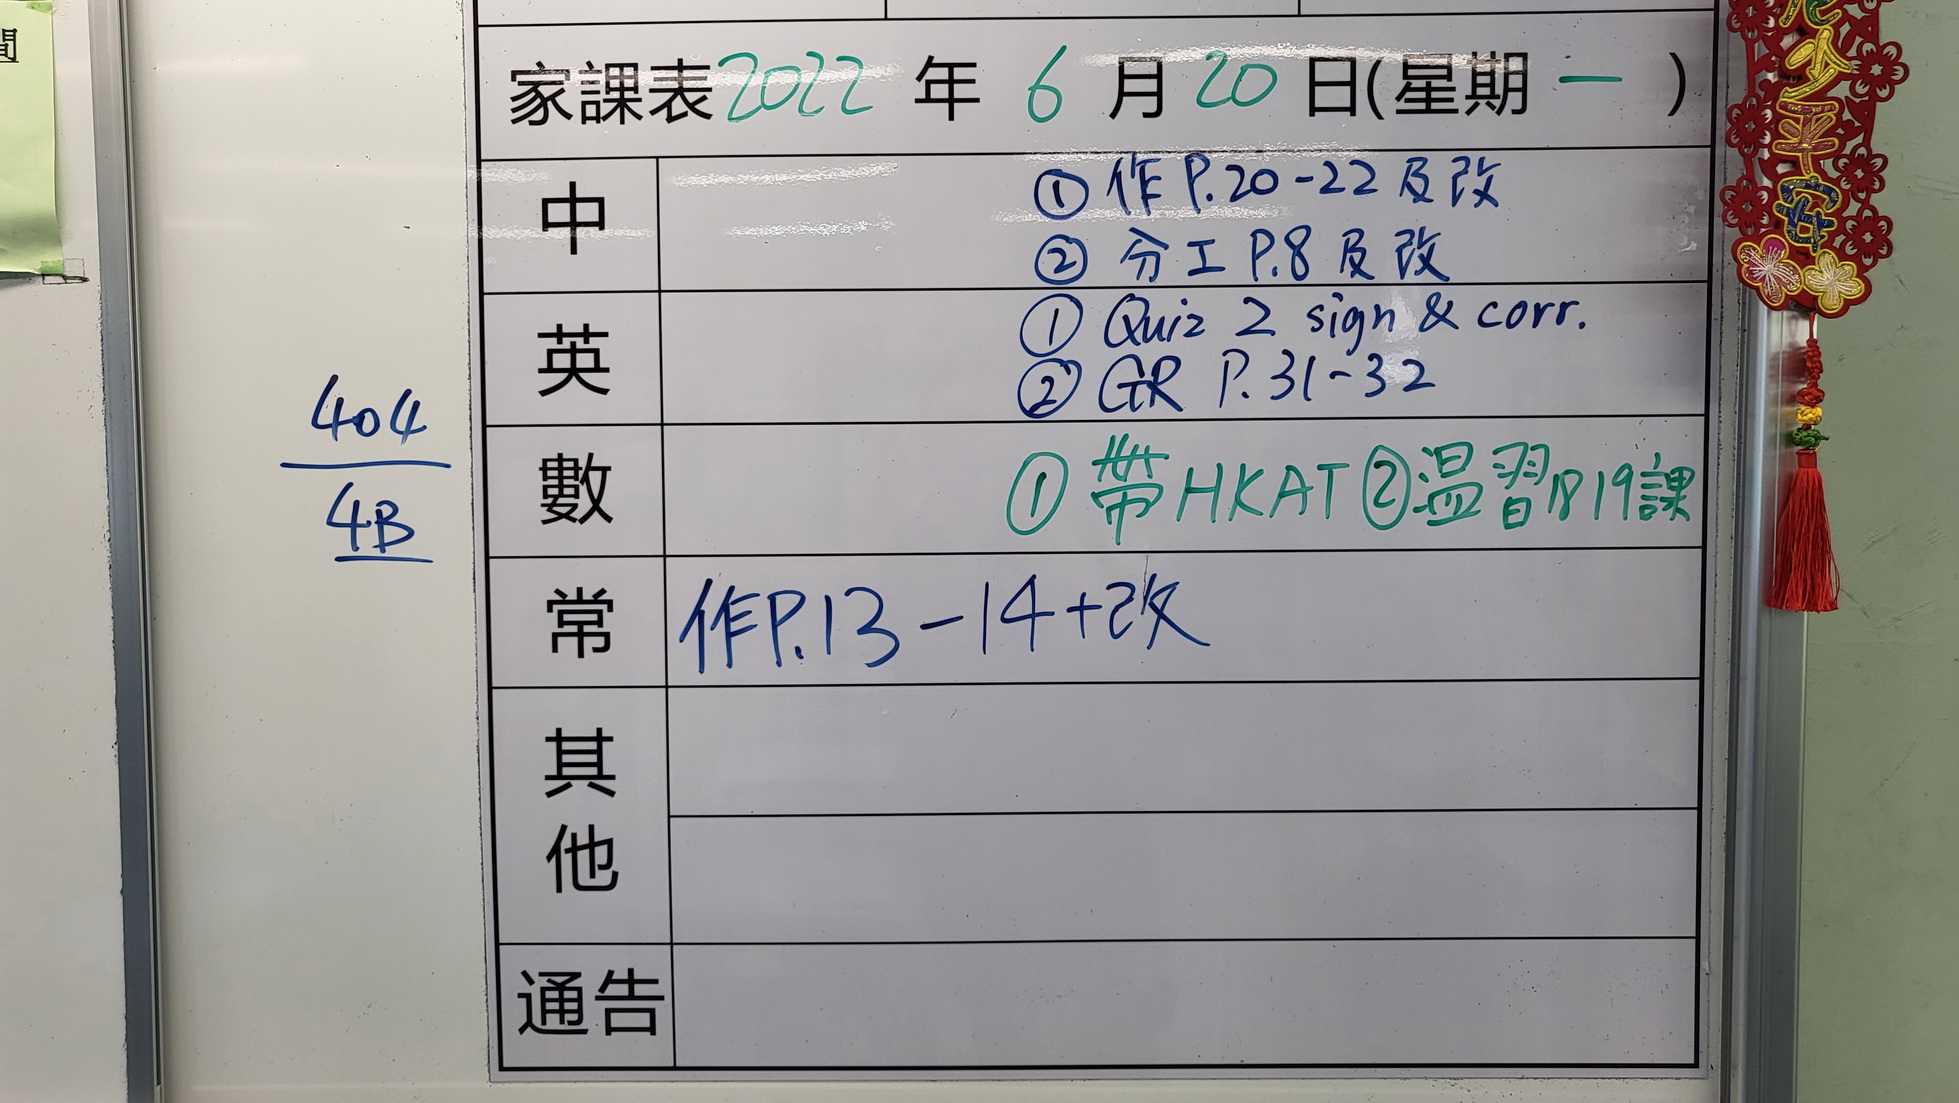 間
家課表2022年6月20日(星期一)
中
① 作P.20-22及改
② 分工P.8及改
英
① Quiz 2 sign & corr.
② GR P.31-32
數
① 帶HKAT ②温習18 19課
常
作P.13-14+改
其他
通告
404
4B
老少平安